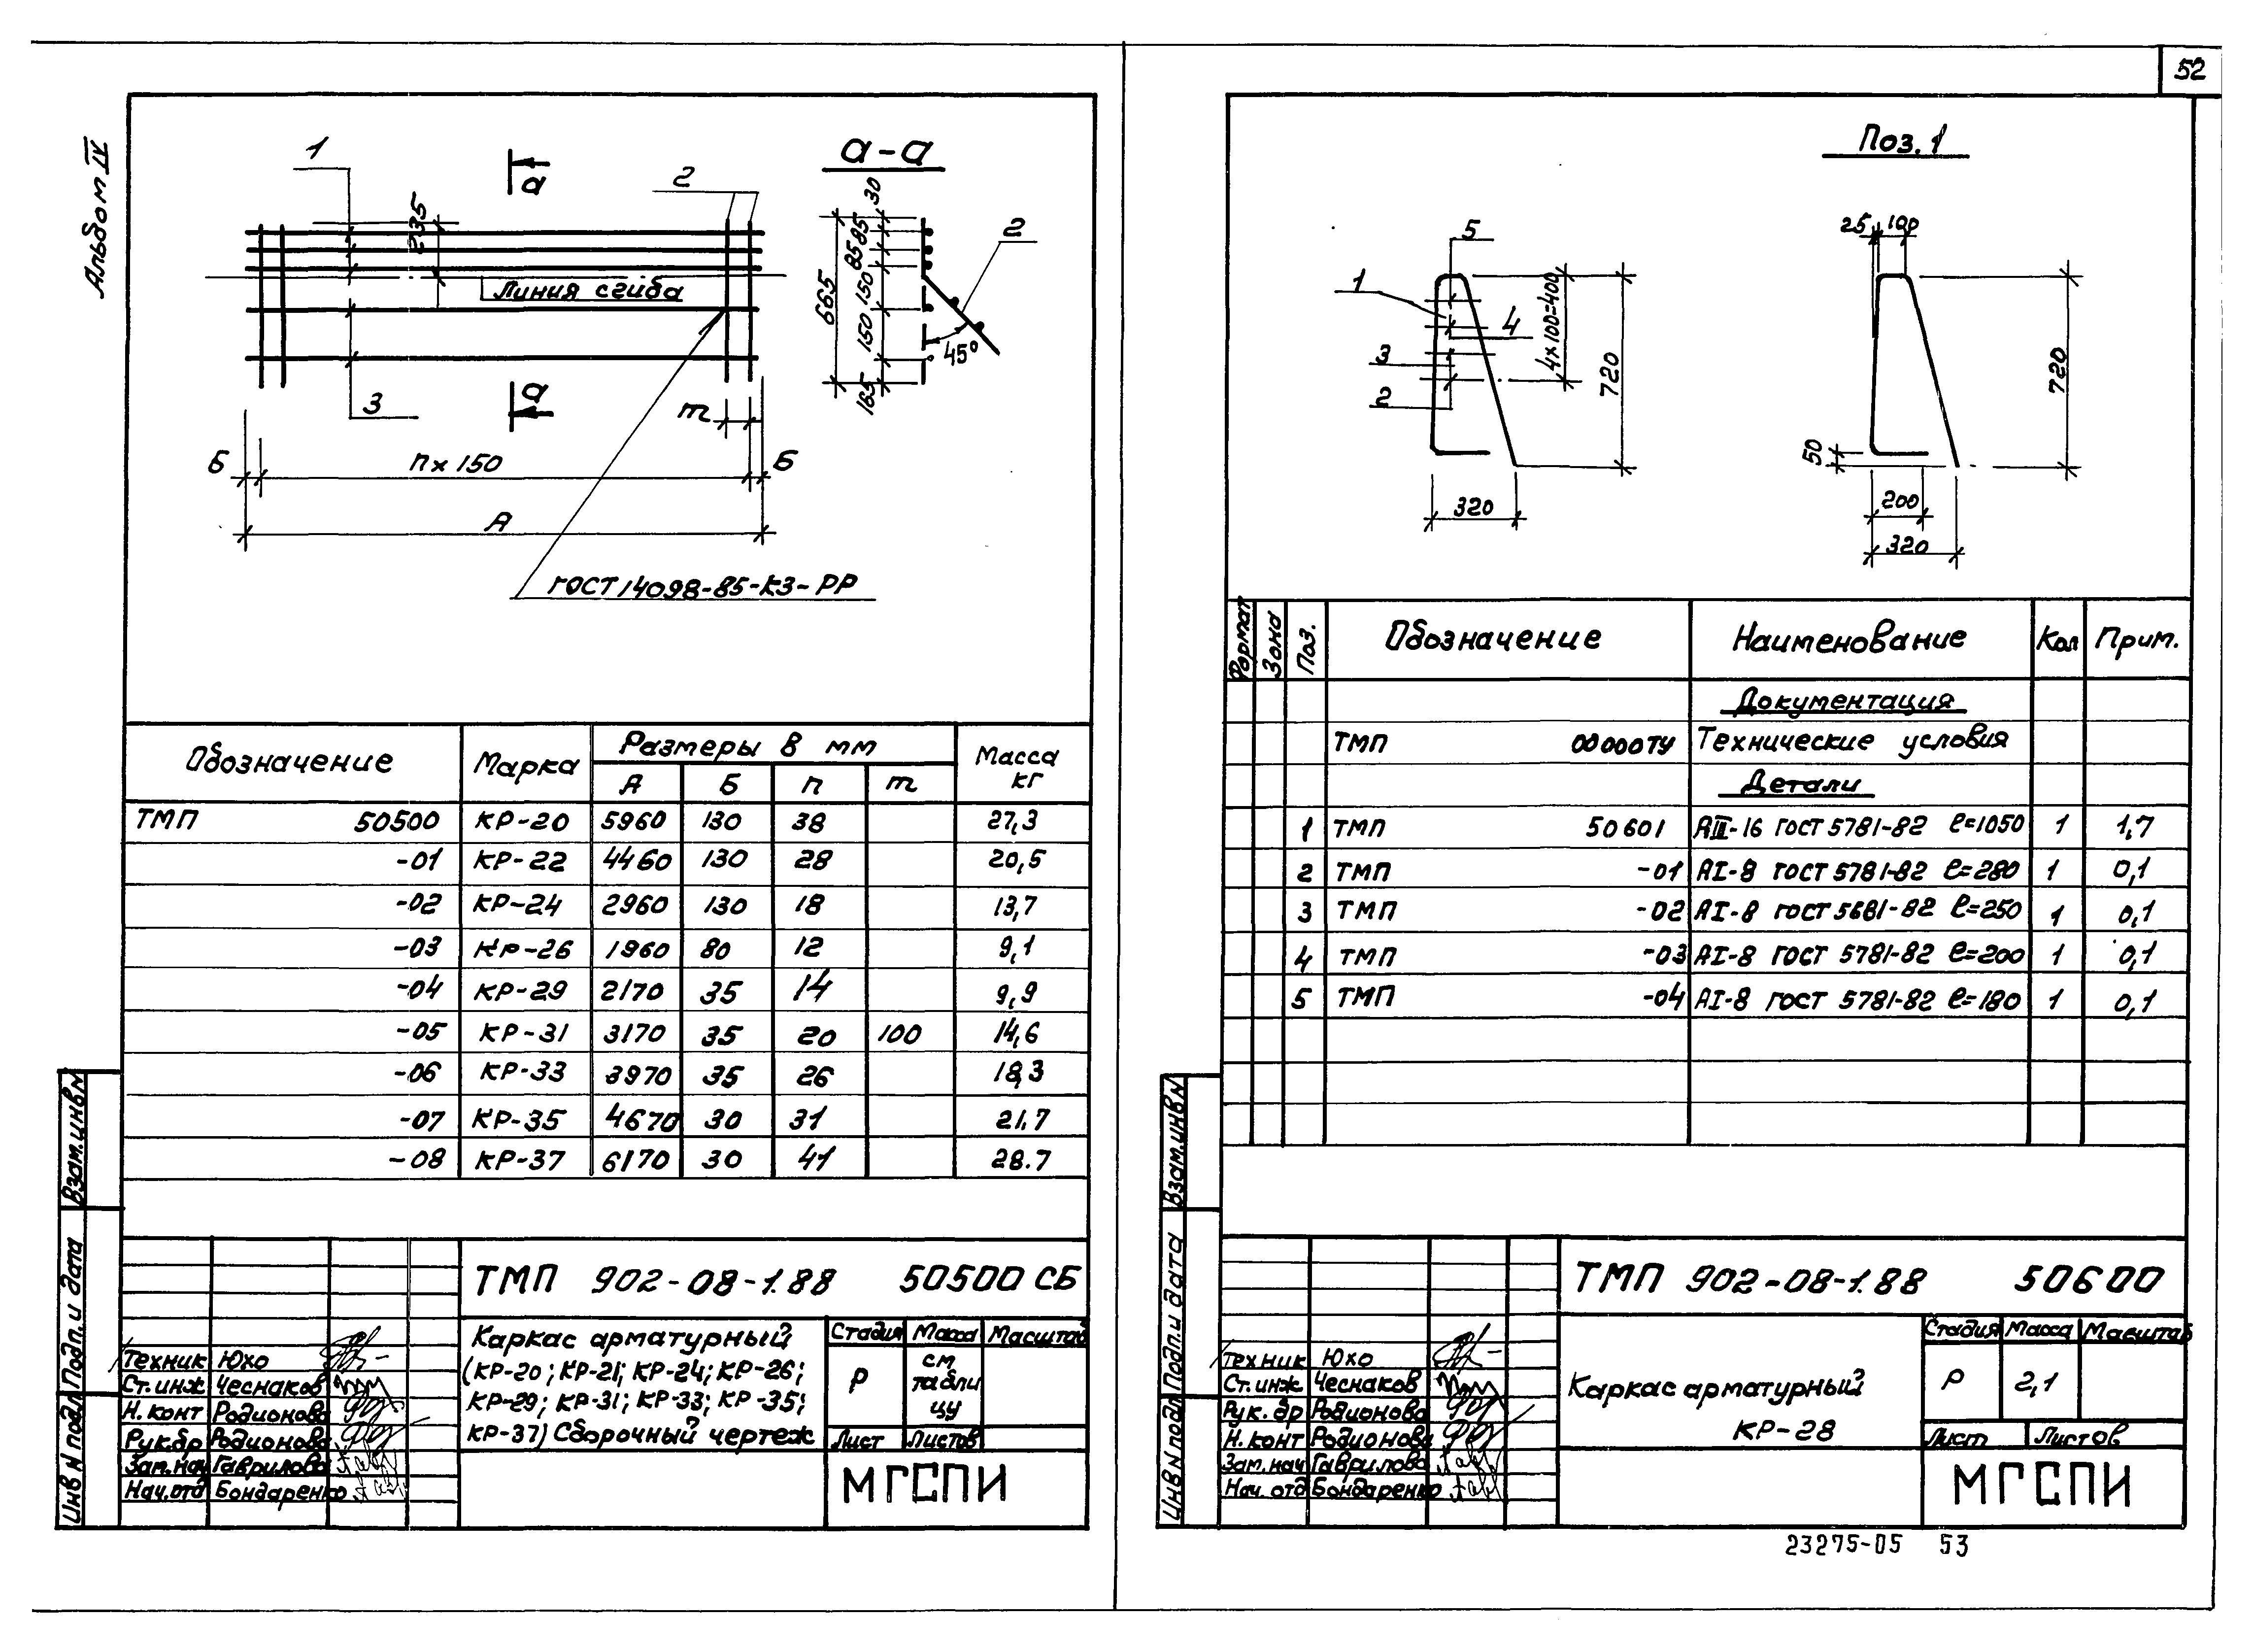 52
Альбом IV
1
а
2
а-а
235
Линия сгиба
3
а
m
Б
n×150
Б
А
ГОСТ 14098-85-К3-РР
30
85
85
150
150
165
665
2
45°
Обозначение
Марка
Размеры в мм
Масса кг
А
Б
n
m
ТМП 50500 КР-20 5960 130 38 27,3
-01 КР-22 4460 130 28 20,5
-02 КР-24 2960 130 18 13,7
-03 КР-26 1960 80 12 9,1
-04 КР-29 2170 35 14 9,9
-05 КР-31 3170 35 20 100 14,6
-06 КР-33 3970 35 26 18,3
-07 КР-35 4670 30 31 21.7
-08 КР-37 6170 30 41 28.7
Взам.инв N
Подп. и дата
Инв N подл
ТМП 902-08-1.88 50500 СБ
Каркас арматурный
(КР-20; КР-21; КР-24; КР-26;
КР-29; КР-31; КР-33; КР-35;
КР-37) Сборочный чертеж
Стадия Масса Масштаб
Р
см
табли
цу
Лист Листов
МГСПИ
Техник Юхо
Ст.инж Чеснаков
Н.конт Родионова
Рук.бр Родионова
Зам.нач Гаврилова
Нач.отд Бондаренко
Поз.1
5
1
4
3
2
4×100=400
720
320
25
100
720
50
200
320
Формат
Зона
Поз.
Обозначение
Наименование
Кол
Прим.
Документация
ТМП 00000ТУ Технические условия
Детали
1 ТМП 50601 АIII-16 ГОСТ 5781-82 ℓ=1050 1 1,7
2 ТМП -01 АI-8 ГОСТ 5781-82 ℓ=280 1 0,1
3 ТМП -02 АI-8 ГОСТ 5681-82 ℓ=250 1 0,1
4 ТМП -03 АI-8 ГОСТ 5781-82 ℓ=200 1 0,1
5 ТМП -04 АI-8 ГОСТ 5781-82 ℓ=180 1 0,1
Взам.инв N
Подп. и дата
Инв N подл
ТМП 902-08-1.88 50600
Каркас арматурный
КР-28
Стадия Масса Масштаб
Р 2,1
Лист Листов
МГСПИ
Техник Юхо
Ст.инж Чеснаков
Рук.бр Родионова
Н.конт Родионова
Зам.нач Гаврилова
Нач.отд Бондаренко
23275-05 53